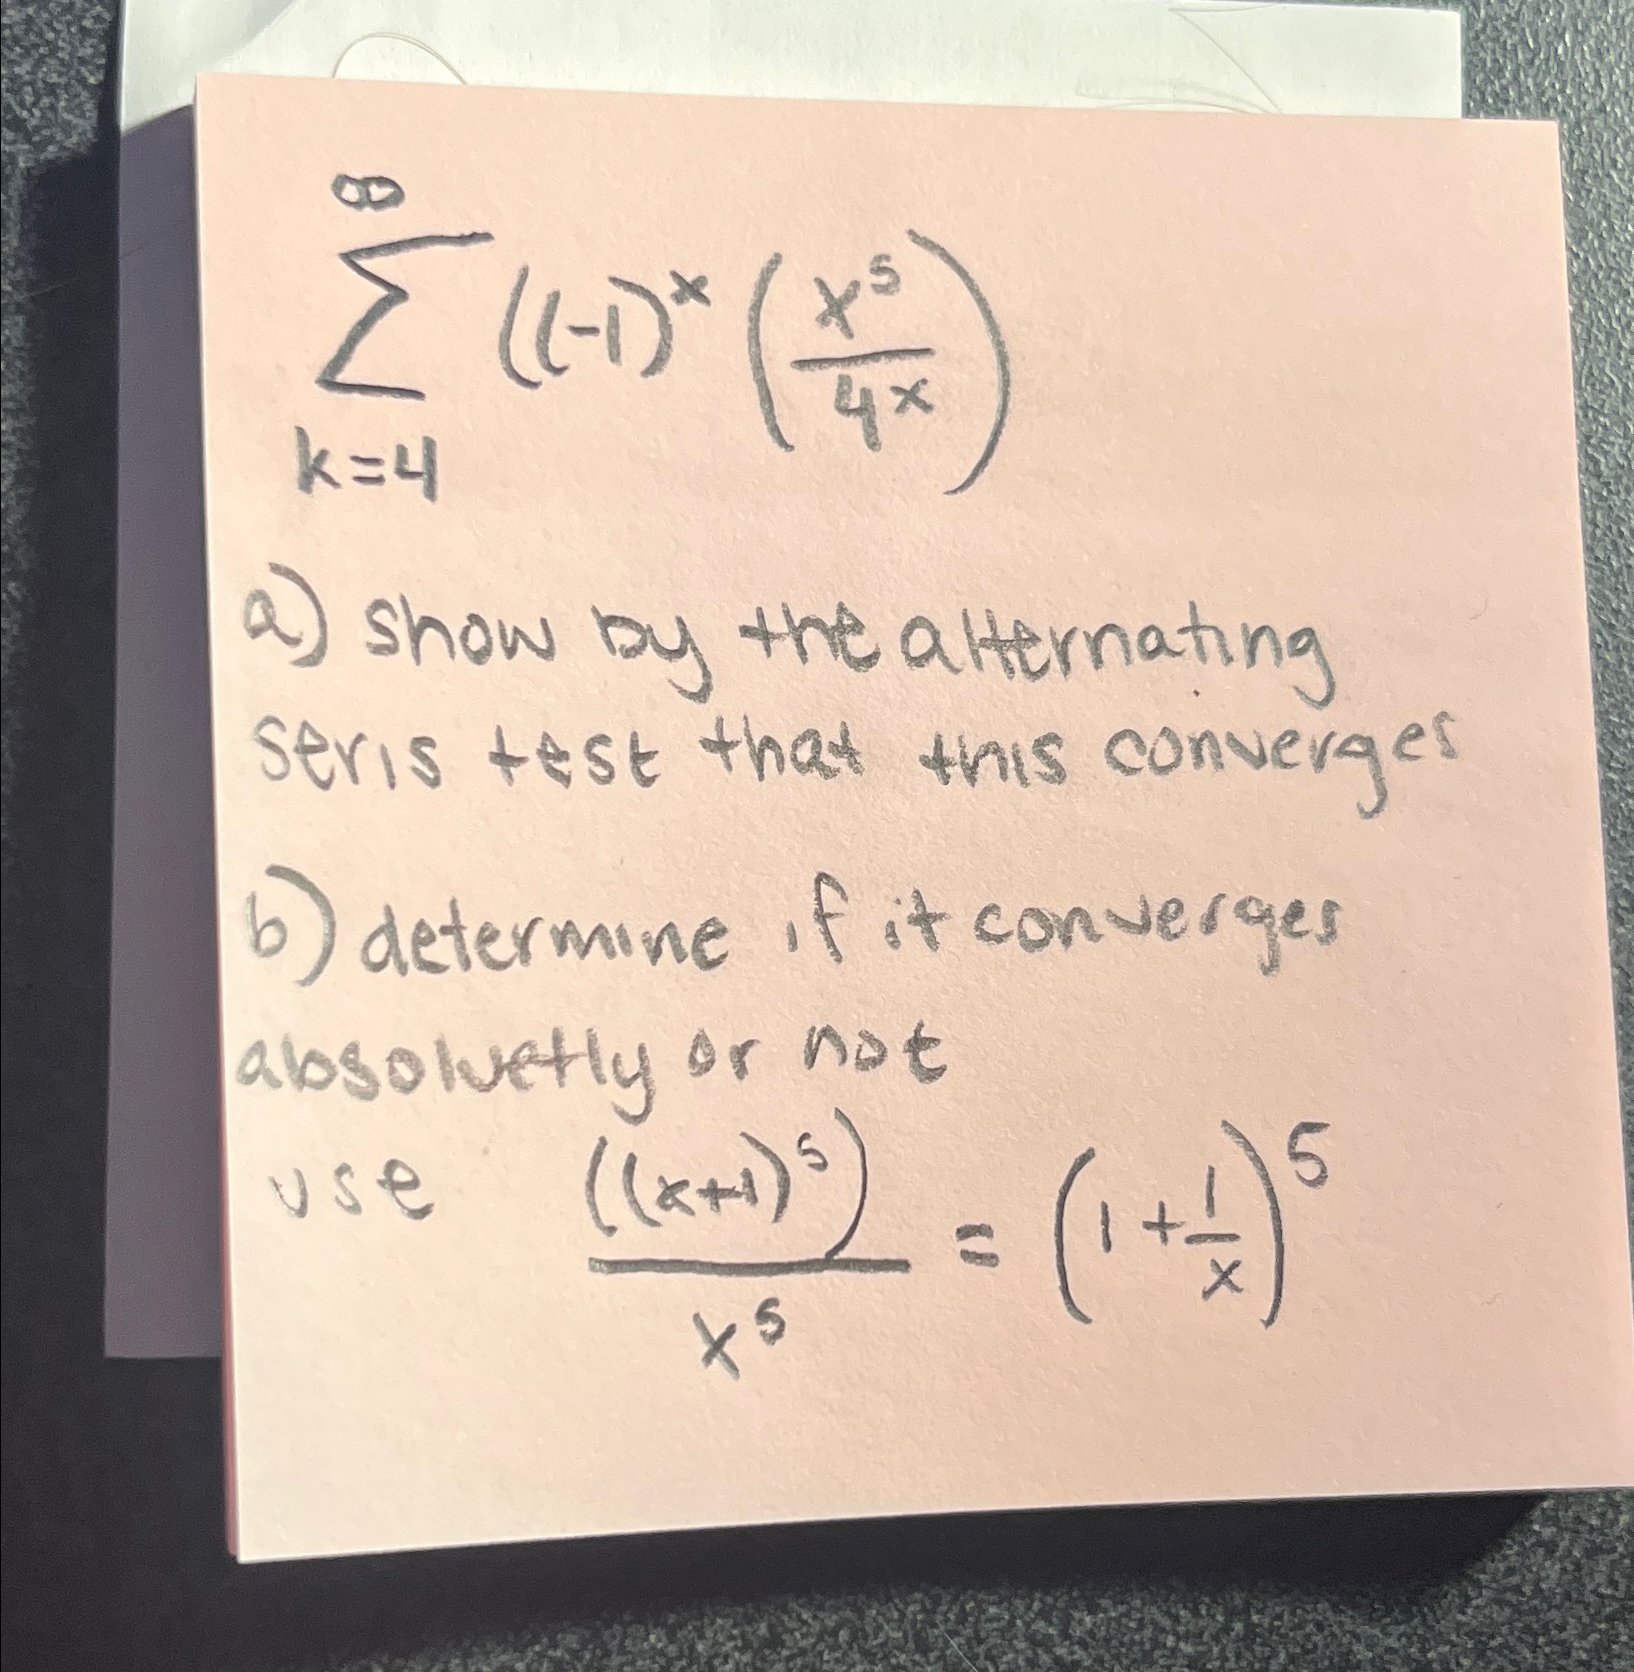 ∞
∑ ((-1)^x (x^5/4^x))
k=4
a) show by the alternating
seris test that this converges
b) determine if it converges
absoluetly or not
use ((x+1)^5)/x^5 = (1+1/x)^5